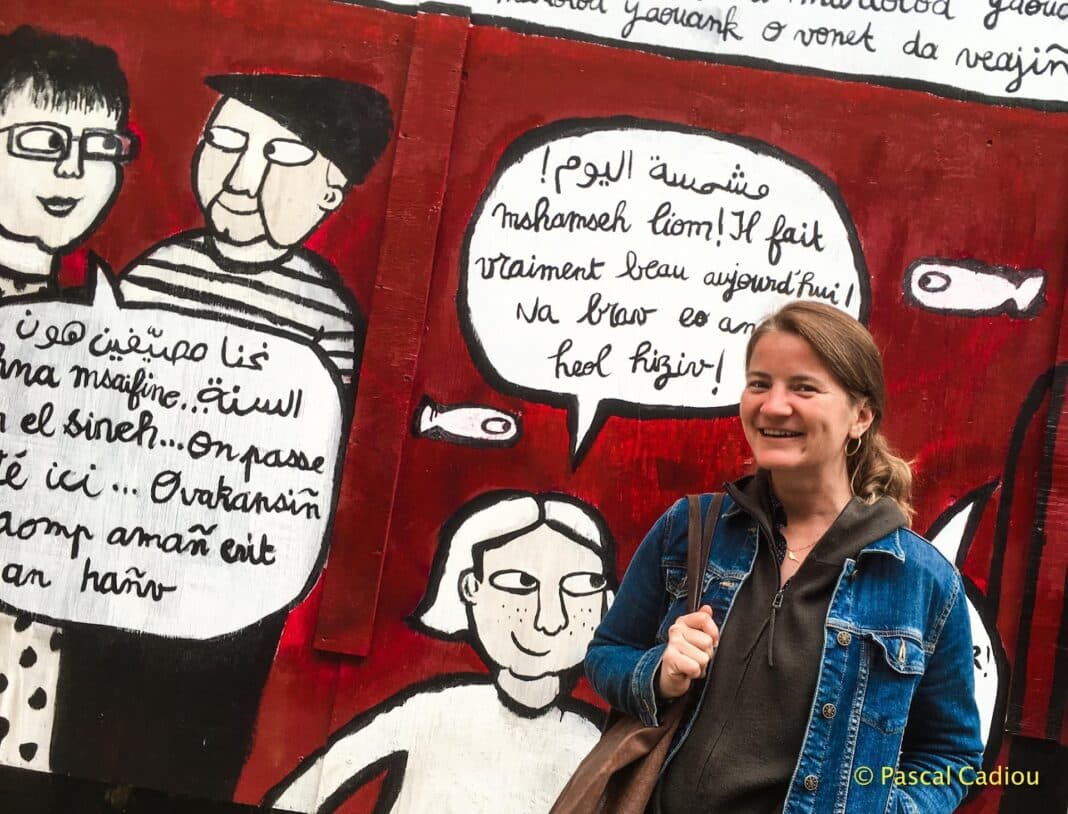 yaouank o vonet da veajiñ
مشمسة اليوم!
mshamseh liom! Il fait
vraiment beau aujourd'hui!
Na brav eo an
heol hiziv!
نحنا مصيّفين هون
السنة...
msaifine...
el sineh... on passe
ici... Ovakansiñ
amañ erit
an hañv
© Pascal Cadiou